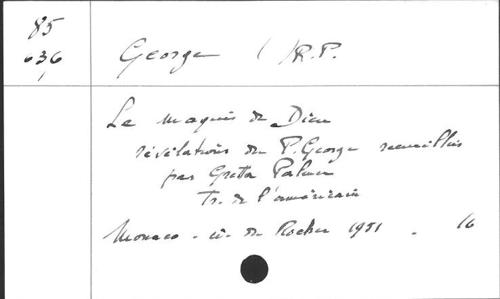 85
636
George ( ) R.P.
Le maquis de Dieu
révélations du P. George recueillies
par Gretta Palmer
Tr. de l'américain
Monaco - éd. du Rocher 1951 - 16